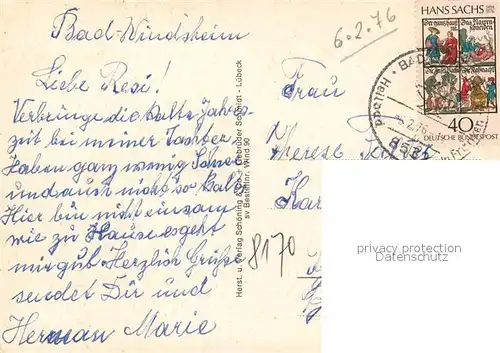 Bad-Windsheim
6.2.76
Liebe Resi!
Verbringe die kalte Jahres-
zeit bei meiner Tochter
Haben ganz wenig Schnee
und auch nicht so kalt
Hier bin nicht einsam
wie zu Hause es geht
mir gut. Herzlich Grüße
sendet Dir und
Herman Marie
Herst. u. Verlag Schöning & Co. + Gebrüder Schmidt - Lübeck
sv Bestellnr. Wind 90
Frau
Therese
8170
HANS SACHS
40 DEUTSCHE BUNDESPOST
Heilbad · BAD
privacy protection
Datenschutz